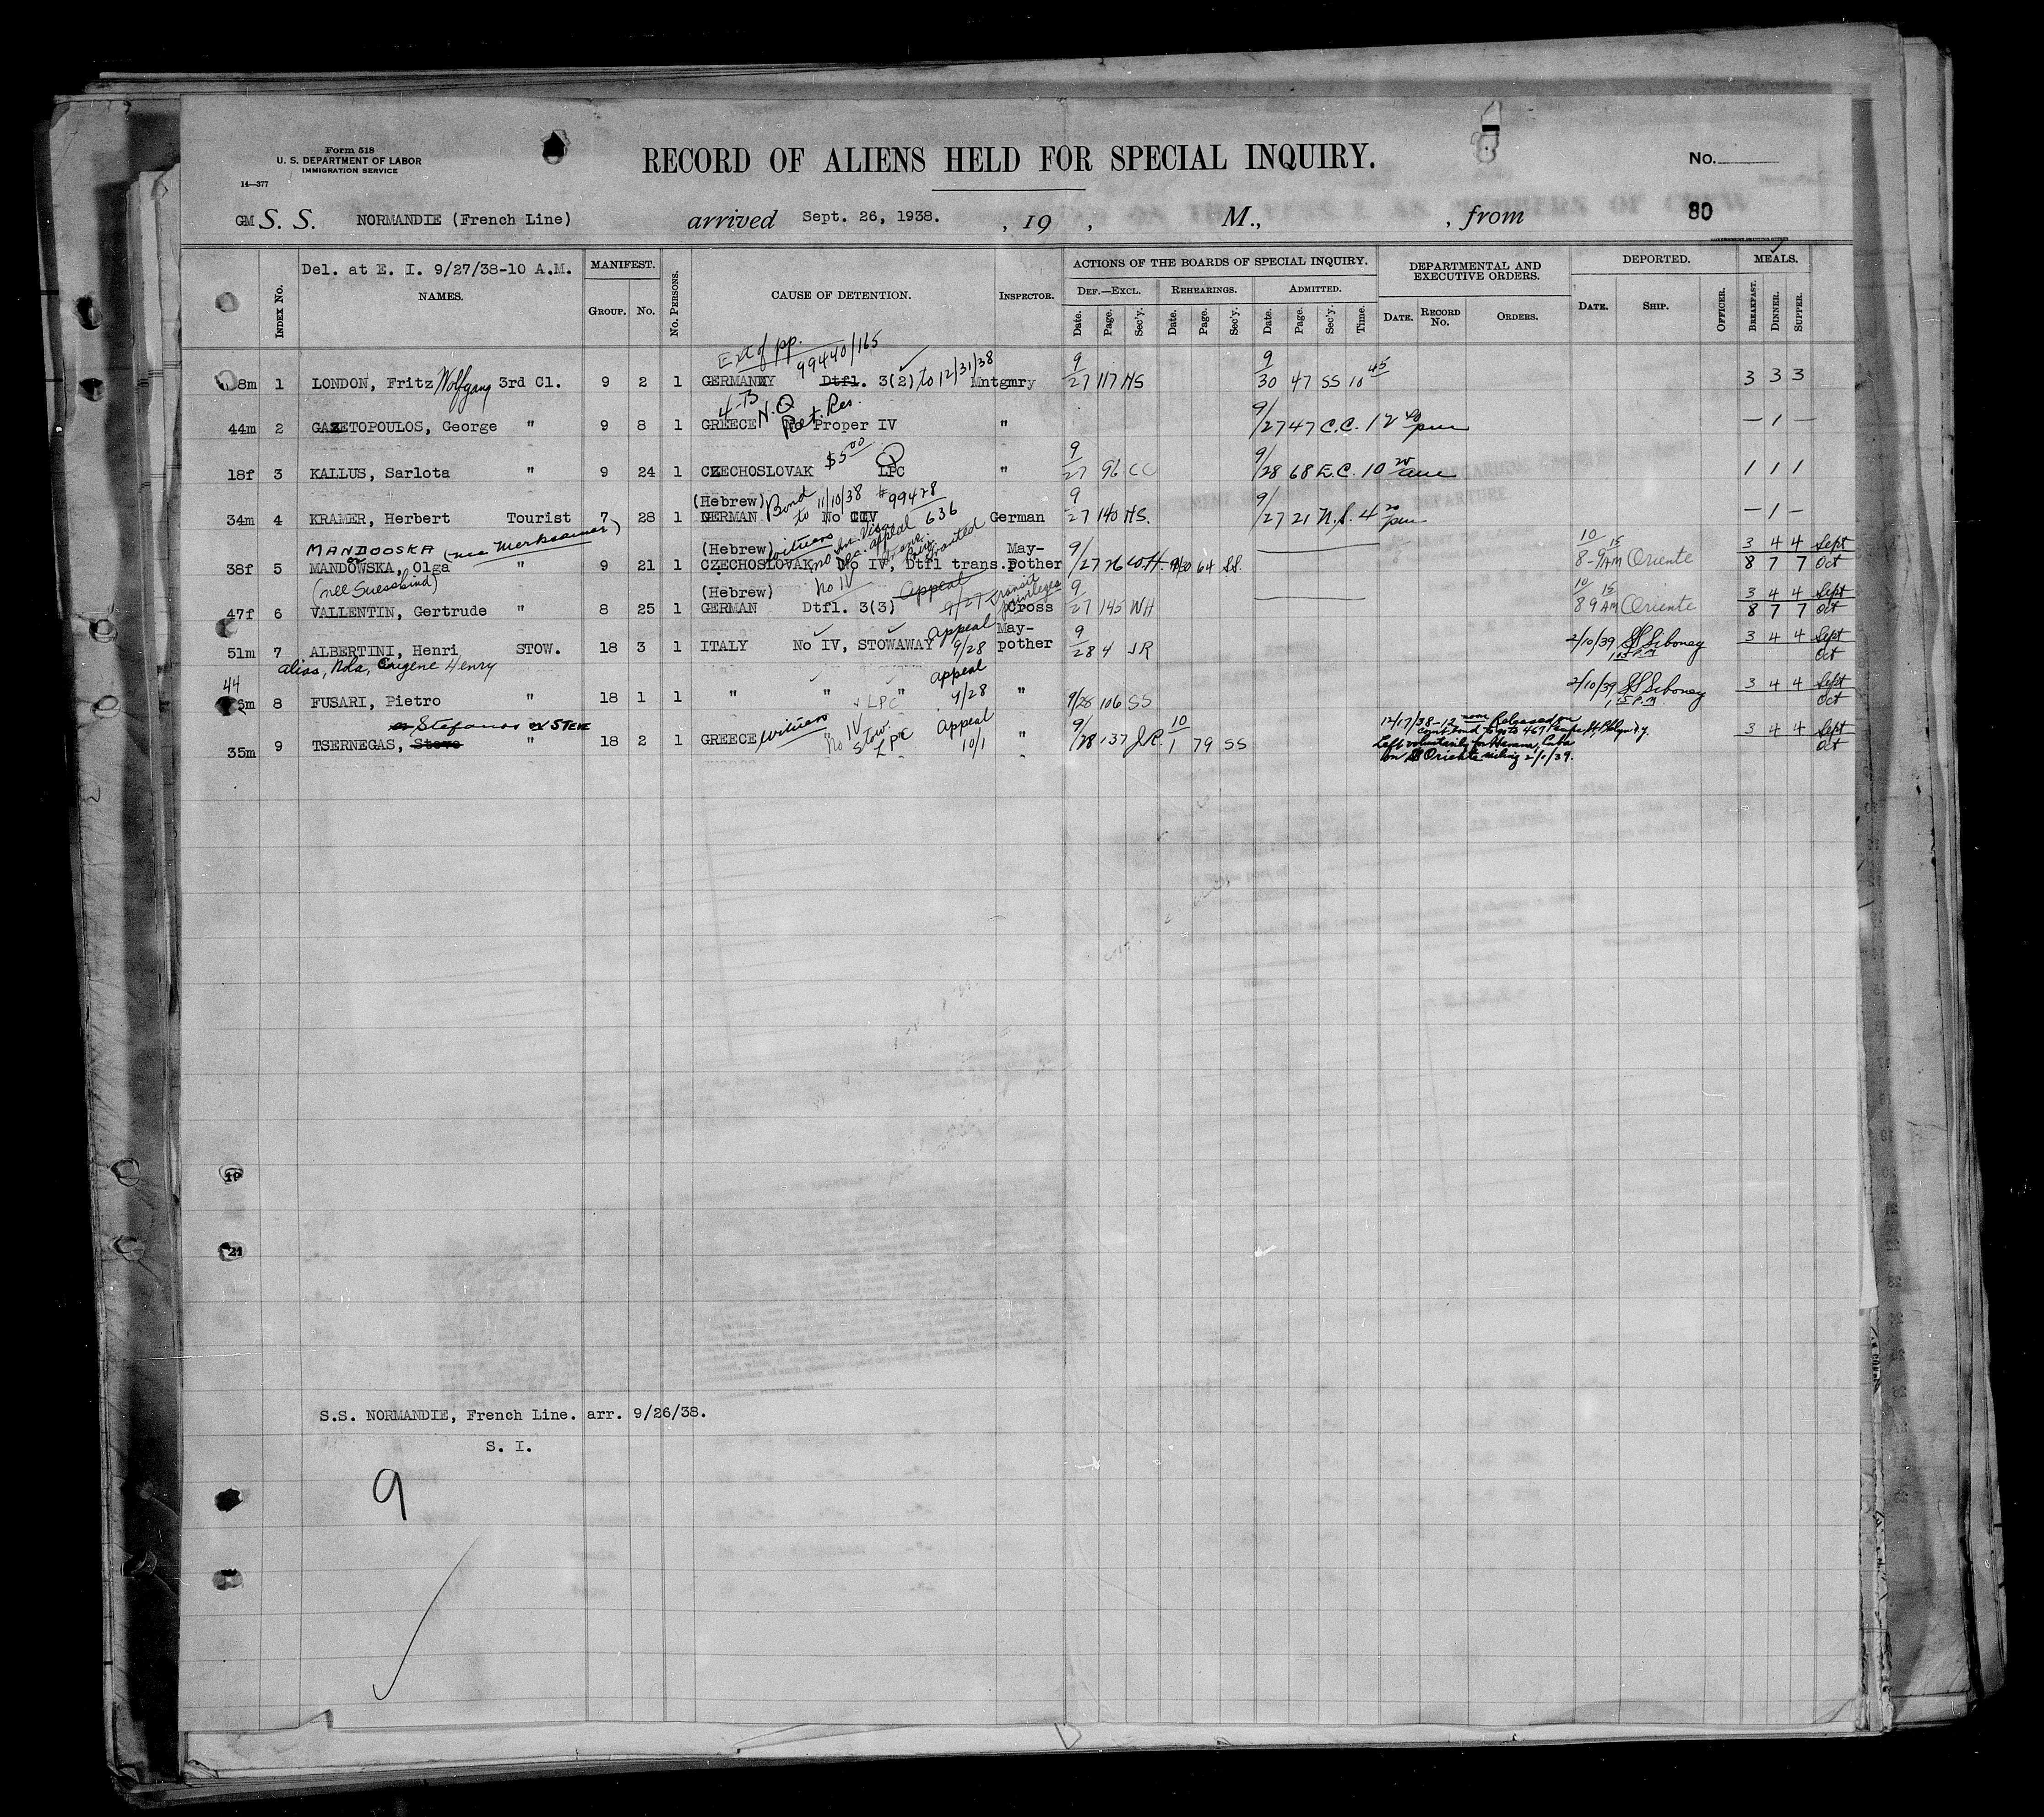 Form 518
U. S. DEPARTMENT OF LABOR
IMMIGRATION SERVICE
14—377
RECORD OF ALIENS HELD FOR SPECIAL INQUIRY.
No.
GM S. S. NORMANDIE (French Line) arrived Sept. 26, 1938. , 19 , M., , from 80
Del. at E. I. 9/27/38-10 A.M.
INDEX No. NAMES. MANIFEST. GROUP. No. No. PERSONS. CAUSE OF DETENTION. INSPECTOR.
ACTIONS OF THE BOARDS OF SPECIAL INQUIRY. DEF.—EXCL. Date. Page. Sec'y. REHEARINGS. Date. Page. Sec'y. ADMITTED. Date. Page. Sec'y. Time.
DEPARTMENTAL AND EXECUTIVE ORDERS. DATE. RECORD No. ORDERS.
DEPORTED. DATE. SHIP. OFFICER. MEALS. BREAKFAST. DINNER. SUPPER.
Ext of pp. 99440/165
8m 1 LONDON, Fritz Wolfgang 3rd Cl. 9 2 1 GERMANY Dtfl. 3(2) to 12/31/38 Mntgmry 9/27 117 HS 9/30 47 SS 10 45 3 3 3
4-B N.Q Ret. Res.
44m 2 GAZETOPOULOS, George " 9 8 1 GREECE No Proper IV " 9/27 47 C.C. 12 40 pm — 1 —
$5 00
18f 3 KALLUS, Sarlota " 9 24 1 CZECHOSLOVAK LPC " 9/27 96 CC 9/28 68 E.C. 10 20 am 1 1 1
(Hebrew) Bond to 11/10/38 #99428/636
34m 4 KRAMER, Herbert Tourist 7 28 1 GERMAN No IV German 9/27 140 HS. 9/27 21 N.S. 4 20 pm — 1 —
MANDOOSKA (nee Merksamer)
(Hebrew) witness no Visa appeal granted May-
38f 5 or MANDOWSKA, Olga " 9 21 1 CZECHOSLOVAK No IV, Dtfl trans. pother 9/27 26 W.H. 9/30 64 SS. 10/8 - 9 15 AM Oriente 3 4 4 Sept 8 7 7 Oct
(nee Suesskind)
(Hebrew) No IV Appeal 9/27 transit privileges
47f 6 VALLENTIN, Gertrude " 8 25 1 GERMAN Dtfl. 3(3) Cross 9/27 145 WH 10/8 9 15 AM Oriente 3 4 4 Sept 8 7 7 Oct
51m 7 ALBERTINI, Henri STOW. 18 3 1 ITALY No IV, STOWAWAY appeal 9/28 May-pother 9/28 4 JR 2/10/39 SS Siboney 1 15 P.M 3 4 4 Sept Oct
alias, Nola, Eugene Henry
44
6m 8 FUSARI, Pietro " 18 1 1 " " LPC " appeal 9/28 " 9/28 106 SS 2/10/39 SS Siboney 1 15 P.M. 3 4 4 Sept Oct
or Stefanos or STEVE
35m 9 TSERNEGAS, Steve " 18 2 1 GREECE witness No IV Stow. LPC Appeal 10/1 " 9/28 137 J.R. 10/1 79 SS 3 4 4 Sept Oct
12/17/38-12 noon Released on
Left voluntarily for Havana, Cuba
on SS Oriente sailing 2/1/39.
19
21
S.S. NORMANDIE, French Line. arr. 9/26/38.
S. I.
9